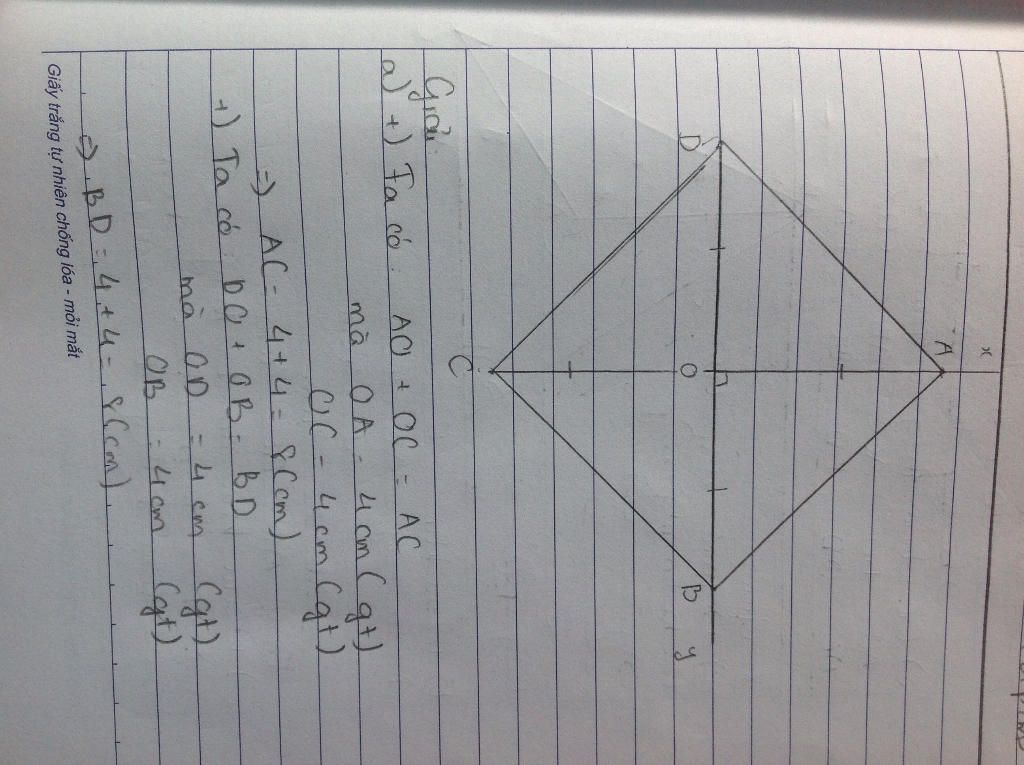 x
A
D
O
B
y
C
Giải:
a) +) Ta có: AO + OC = AC
mà OA = 4cm (gt)
OC = 4cm (gt)
=> AC = 4+4 = 8(cm)
+) Ta có: DO + OB = BD
mà OD = 4cm (gt)
OB = 4cm (gt)
=> BD = 4+4 = 8(cm)
Giấy trắng tự nhiên chống lóa - mỏi mắt